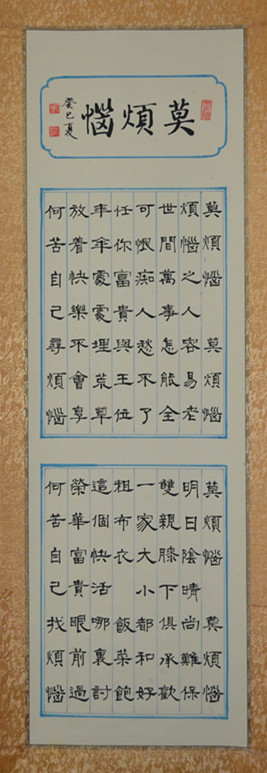 莫煩惱
癸巳夏
莫煩惱 莫煩惱
煩惱之人容易老
世間萬事怎能全
可恨痴人愁不了
任你富貴與王位
年年處處埋荒草
放着快樂不會享
何苦自己尋煩惱
莫煩惱 莫煩惱
明日陰晴尚難保
雙親膝下俱承歡
一家大小都和好
粗布衣 飯菜飽
這個快活哪裏討
榮華富貴眼前過
何苦自己找煩惱